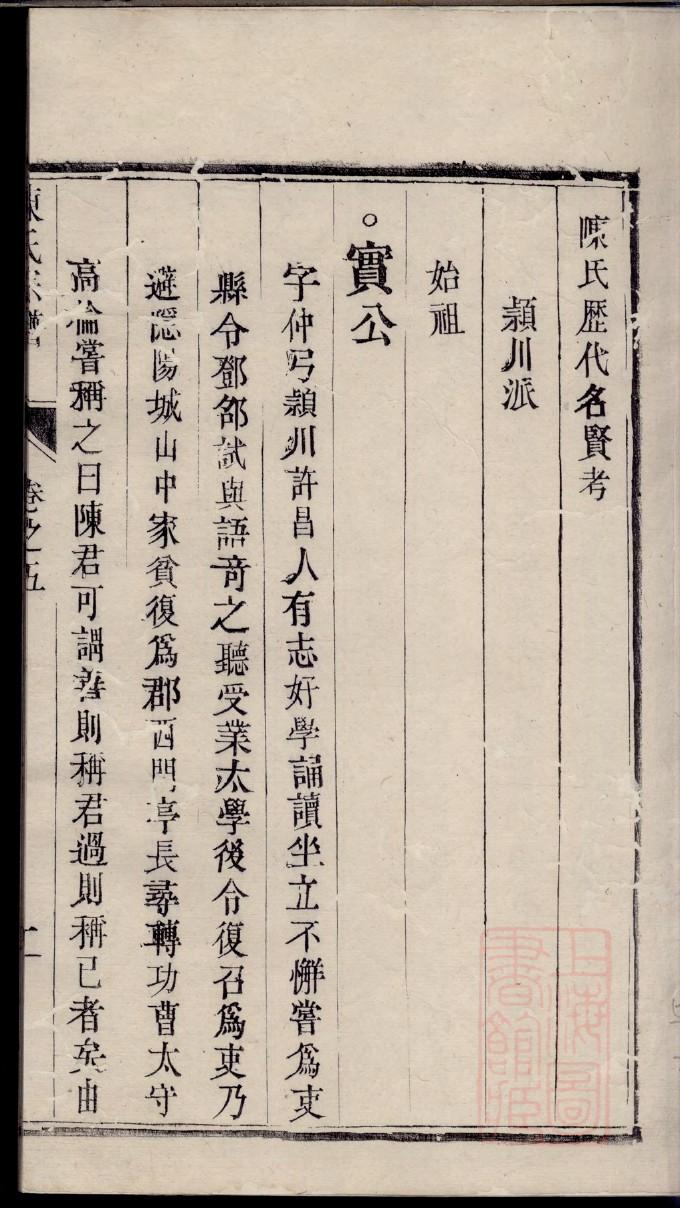 陳氏歴代名賢考
頴川派
始祖
○實公
字仲弓頴川許昌人有志好學誦讀坐立不懈嘗爲吏
縣令鄧邵試與語奇之聽受業太學後令復召爲吏乃
避隱陽城山中家貧復爲郡西門亭長尋轉功曹太守
高倫嘗稱之曰陳君可謂善則稱君過則稱已者矣由
陳氏宗譜
卷之五
上海圖書館藏